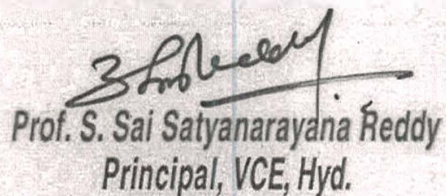 Prof. S. Sai Satyanarayana Reddy
Principal, VCE, Hyd.